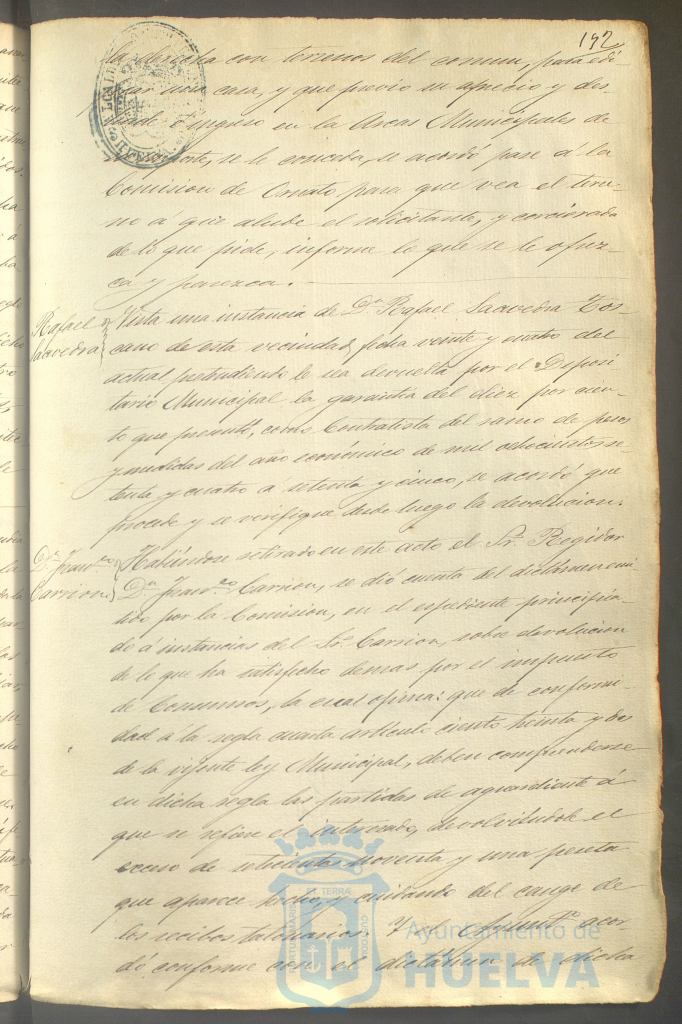 192
la derecha con terrenos del comun, para edi-
ficar una casa, y que previo su aprecio y des-
linde é ingreso en la Arcas Municipales de
su importe, se le conceda, se acordó pase á la
Comision de Ornato para que vea el terre-
no á que alude el solicitante, y cerciorada
de lo que pide, informe lo que se le ofrez-
ca y parezca.
Rafael Saavedra
Vista una instancia de Dn. Rafael Saavedra Tos-
cano de esta vecindad, fecha veinte y cuatro del
actual pretendiendo le sea devuelta por el Deposi-
tario Municipal la garantia del diez por cien-
to que presentó, como Contratista del ramo de pesos
y medidas del año económico de mil ochocientos se-
tenta y cuatro á setenta y cinco, se acordó que
procede y se verifique desde luego la devolucion.
Dn. Franco. Carrion
Habiéndose retirado en este acto el Sr. Regidor
Dn. Franco. Carrion, se dió cuenta del dictámen emi-
tido por la Comision, en el espediente principia-
do á instancias del Sr. Carrion, sobre devolucion
de lo que ha satisfecho demas por el impuesto
de Consumos, la cual opina: que de conformi-
dad á la regla cuarta artículo ciento treinta y dos
de la vijente ley Municipal, deben comprenderse
en dicha regla las partidas de aguardiente á
que se refiere el interesado, devolviéndole el
exceso de setecientas noventa y una peseta
que aparece hecho, y cuidando del cange de
los recibos talonarios. Y el Ayuntto. acor-
dó conforme con el dictámen de dicha
Ayuntamiento de
HUELVA